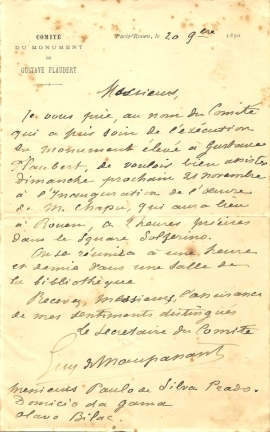 COMITÉ
DU MONUMENT
DE
GUSTAVE FLAUBERT
Paris-Rouen, le 20 9bre 1890
Messieurs,
Je vous prie, au nom du Comité
qui a pris soin de l'exécution
du monument élevé à Gustave
Flaubert, de vouloir bien assister
dimanche prochain 23 novembre
à l'Inauguration de l'œuvre
de M. Chapu, qui aura lieu
à Rouen à heures précises
dans le Square Solferino.
On se réunira à une heure
et demie dans une salle de
la bibliothèque
Recevez, messieurs, l'assurance
de mes sentiments distingués
le Secretaire du Comité
Guy de Maupassant
messieurs Paulo da Silva Prado
Domicio da Gama
Olavo Bilac.